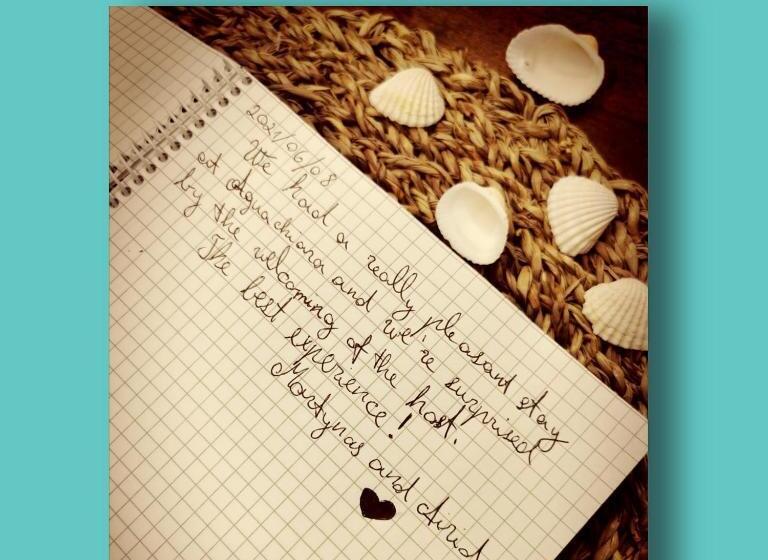 2021/06/08
We had a really pleasant stay
at Aguachiara and we're surprised
by the welcoming of the host.
The best experience!
Martynas and Airid